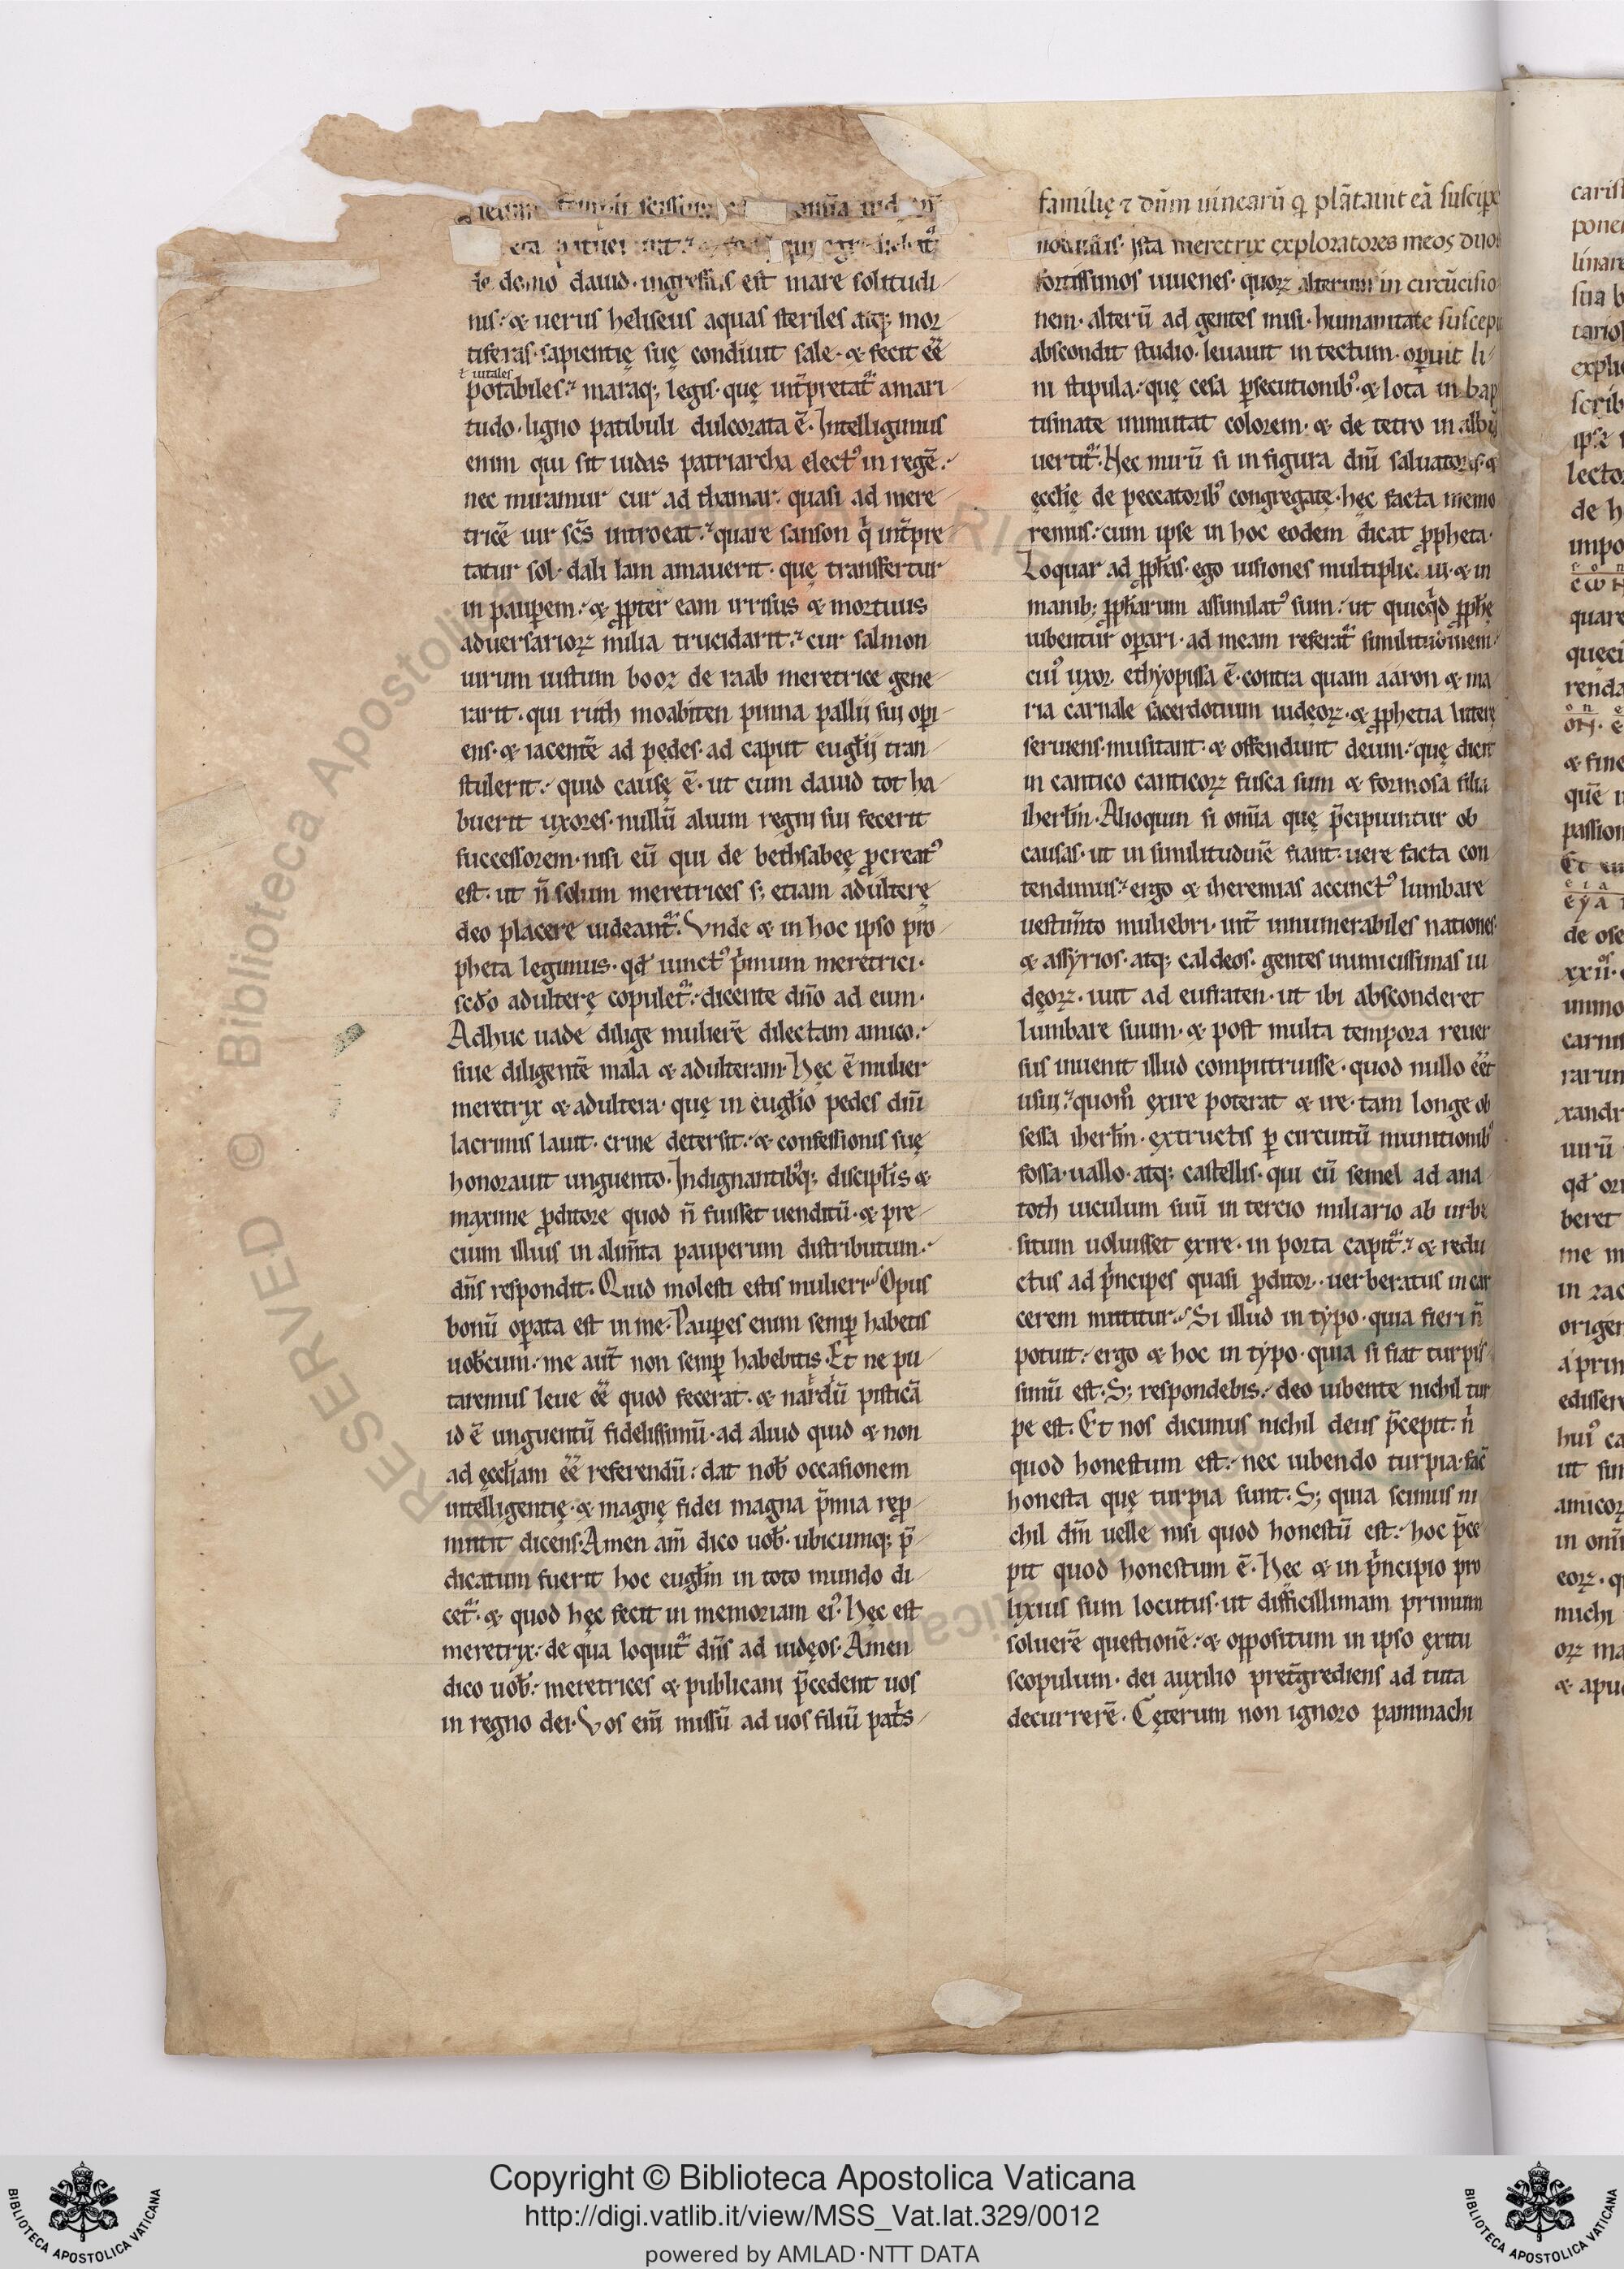 de domo dauid· ingressus est mare solitudi
nis· & uerus heliseus aquas steriles atq; mor
tiferas· sapientię suę condiuit sale· & fecit eē
ł uitales
potabiles· maraq; legis· quę int̄pretat᷑ amari
tudo· ligno patibuli dulcorata ē· Intelligimus
enim qui sit iudas patriarcha elect᷒ in regē·
nec miramur cur ad thamar· quasi ad mere
tricē uir sc̄s introeat· quare sanson q' int̄pre
tatur sol· dalilam amauerit· quę transfertur
in paupem· & ppter eam irrisus & mortuus
aduersarioꝝ milia trucidarit· cur salmon
uirum iustum booz de raab meretrice gene
rarit· qui ruth moabiten pinna pallij sui opi
ens· & iacentē ad pedes· ad caput eugłij tran
stulerit· quid causę ē· ut cum dauid tot ha
buerit uxores· nullū alium regni sui fecerit
successorem· nisi eū qui de bethsabeę pcreat᷒
est· ut n̄ solum meretrices s; etiam adulterę
deo placere uideant᷑· Vnde & in hoc ipso pro
pheta legimus· qđ iunct᷒ p'mum meretrici·
scđo adulterę copulet᷑· dicente dn̄o ad eum·
Adhuc uade dilige mulierē dilectam amico·
siue diligentē mala & adulteram· Hęc ē mulier
meretrix & adultera· quę in eugłio pedes dn̄i
lacrimis lauit· crine detersit· & confessionis suę
honorauit unguento· Indignantib᷒q; discipłis &
maxime pditore quod n̄ fuisset uenditū· & pre
cium illius in alim̄ta pauperum distributum·
dn̄s respondit· Quid molesti estis mulieri? Opus
bonū opata est in me· Paupes enim semp habetis
uobcum· me aut̄ non semp habebitis· Et ne pu
taremus leue eē quod fecerat· & nardū pisticā
id ē unguentū fidelissimū· ad aliud quid & non
ad ęccłiam eē referendū· dat nob occasionem
intelligentię· & magnę fidei magna p̄mia rep
mittit dicens· Amen am̄ dico uob· ubicumq; p̄
dicatum fuerit hoc eugłm in toto mundo di
cet᷑· & quod hęc fecit in memoriam ei᷒· Hęc est
meretrix· de qua loquit᷑ dn̄s ad iudęos· Amen
dico uob· meretrices & publicani p̄cedent uos
in regno dei· Vos em̄ missū ad uos filiū pat's
familię ⁊ dn̄m uinearū q plātauit eā suscipe
ista meretrix exploratores meos duos
fortissimos iuuenes· quoꝝ alterum in circūcisio
nem· alterū ad gentes misi· humanitate suscepit
abscondit studio· leuauit in tectum· opuit li
ni stipula· quę cesa psecutionib᷒· & lota in bap
tismate immutat colorem· & de tetro in albū
uertit᷑· Nec mirū si in figura dn̄i saluatoris· &
ęcclię de peccatorib᷒ congregatę· hęc facta memo
remus· cum ipse in hoc eodem dicat ppheta·
Loquar ad pphas· ego uisiones multiplicaui· & in
manib; ppharum assimilat᷒ sum· ut quicq'd pphę
iubentur opari· ad meam referat᷑ similitudinem·
cui᷒ uxor ethyopissa ē· contra quam aaron & ma
ria carnale sacerdotium iudęoꝝ· & pphetia litterę
seruiens· musitant· & offendunt deum· quę dicit
in cantico canticoꝝ fusca sum & formosa filia
iherłm· Alioquin si om̄ia quę p̄cipiuntur ob
causas· ut in similitudinē fiant· uere facta con
tendimus· ergo & iheremias accinct᷒ lumbare
uestim̄to muliebri· int̄ innumerabiles nationes
& assyrios· atq; caldeos· gentes inimicissimas iu
dęoꝝ· iuit ad eufraten· ut ibi absconderet
lumbare suum· & post multa tempora reuer
sus inuenit illud computruisse· quod nullo eēt
usui· quom̊ exire poterat & ire· tam longe ob
sessa iherłm· extructis p circuitū munitionib᷒
fossa· uallo· atq; castellis· qui cū semel ad ana
toth uiculum suū in tercio miliario ab urbe
situm uoluisset exire· in porta capit᷑· & redu
ctus ad p'ncipes quasi pditor· uerberatus in car
cerem mittitur· Si illud in typo· quia fieri n̄
potuit· ergo & hoc in typo· quia si fiat turpis
simū est· S; respondebis· deo iubente nichil tur
pe est· Et nos dicimus nichil deus p̄cepit· n'
quod honestum est· nec iubendo turpia· fac̄
honesta quę turpia sunt· S; quia scimus ni
chil dm̄ uelle nisi quod honestū est· hoc p̄ce
pit quod honestum ē· Hec & in p'ncipio pro
lixius sum locutus· ut difficillimam primum
soluerē questionē· & oppositum in ipso exitu
scopulum· dei auxilio pret̄grediens ad tuta
decurrerē· Cęterum non ignoro pammachi
Copyright © Biblioteca Apostolica Vaticana
http://digi.vatlib.it/view/MSS_Vat.lat.329/0012
powered by AMLAD·NTT DATA
BIBLIOTECA APOSTOLICA VATICANA
BIBLIOTECA APOSTOLICA VATICANA